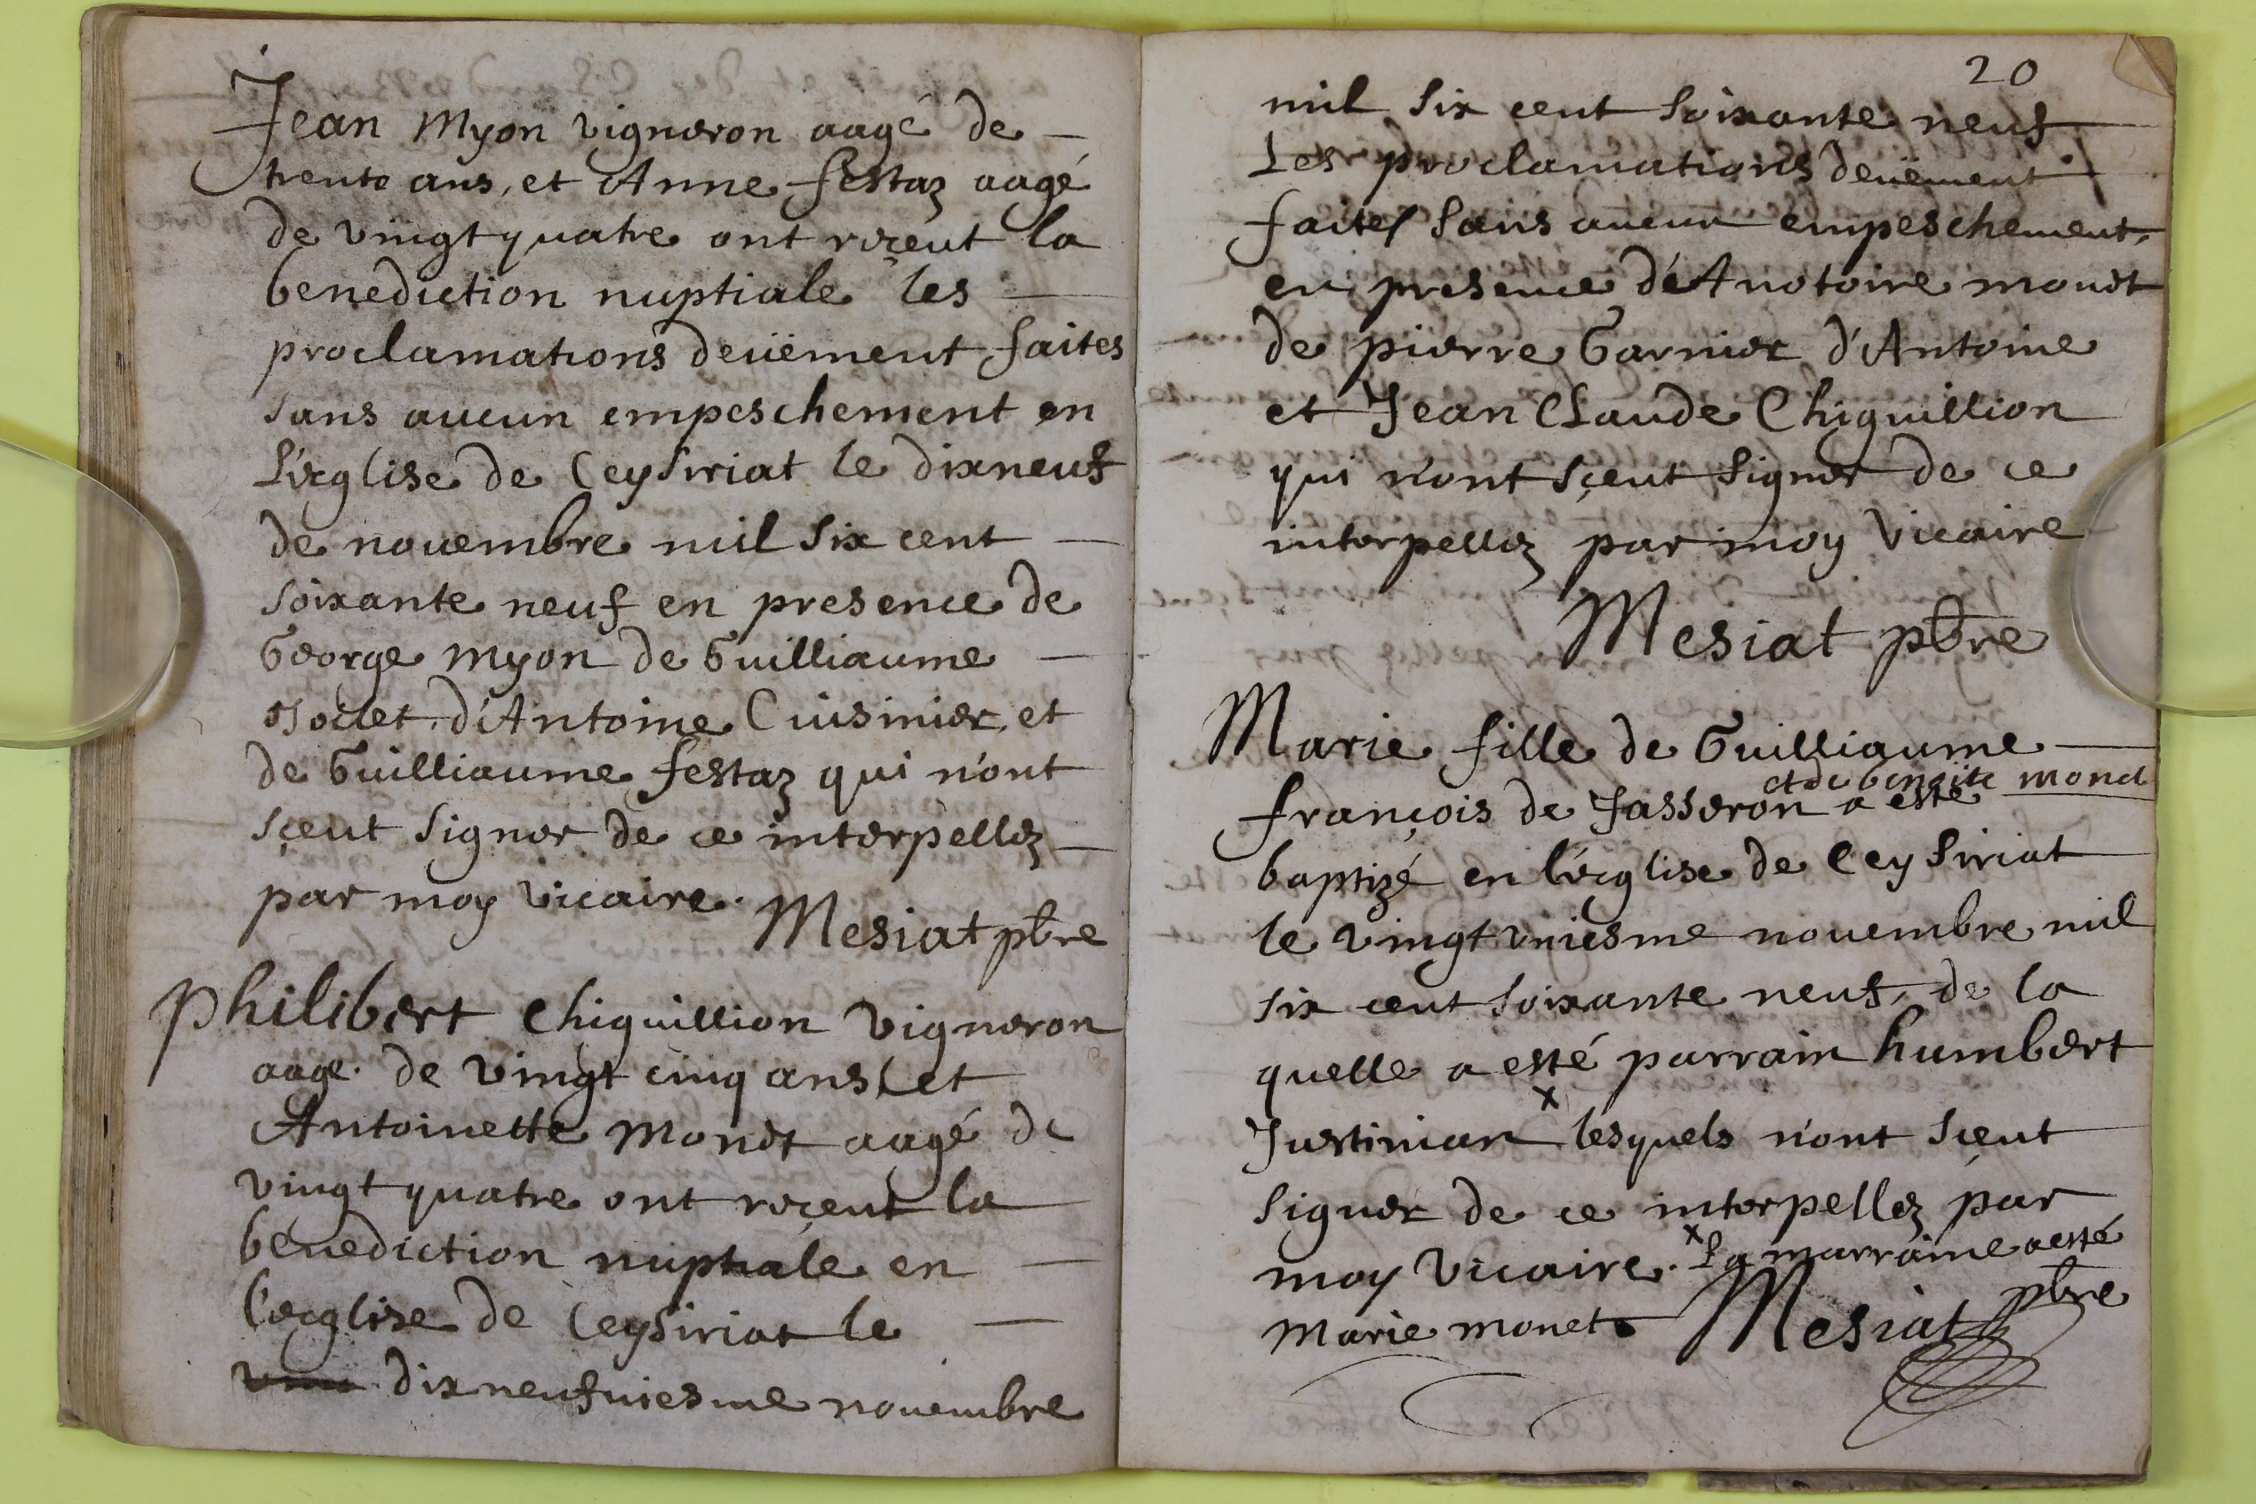 Jean Myon vigneron aagé de
trente ans, et Anne festaz aagé
de vingt quatre ont reçeut la
benediction nuptiale les
proclamations deüement faites
sans aucun empeschement en
L'ecglise de Ceysiriat le dixneuf
de nouembre mil six cent
soixante neuf en presence de
George Myon de Guilliaume
d'Antoine Cuisinier, et
de Guilliaume festaz qui n'ont
sçeut signer de ce interpellez
par moy vicaire. Mesiat pbre
Philibert Chiquillion vigneron
aagé de vingt cinq ans, et
Antoinette Monet aagé de
vingt quatre ont reçeut la
bénediction nuptiale en
l'ecglise de Ceysiriat le
dixneufuiesme nouembre
20
mil six cent soixante neuf
Les proclamations deüement
faites sans aucun empeschement,
en presence de monet
de pierre Garnier d'Antoine
et Jean Claude Chiquillion
qui n'ont sçeut signer de ce
interpellez par moy vicaire
Mesiat pbre
Marie fille de Guilliaume
et de benoite monet
françois de Jasseron a esté
baptizé en l'ecglise de Ceysiriat
le vingt vniesme nouembre mil
six cent soixante neuf, de la
quelle a esté parrain humbert
Justinian x lesquels n'ont sçeut
signer de ce interpellez par
moy vicaire. x La marraine a esté
marie monet. Mesiat pbre